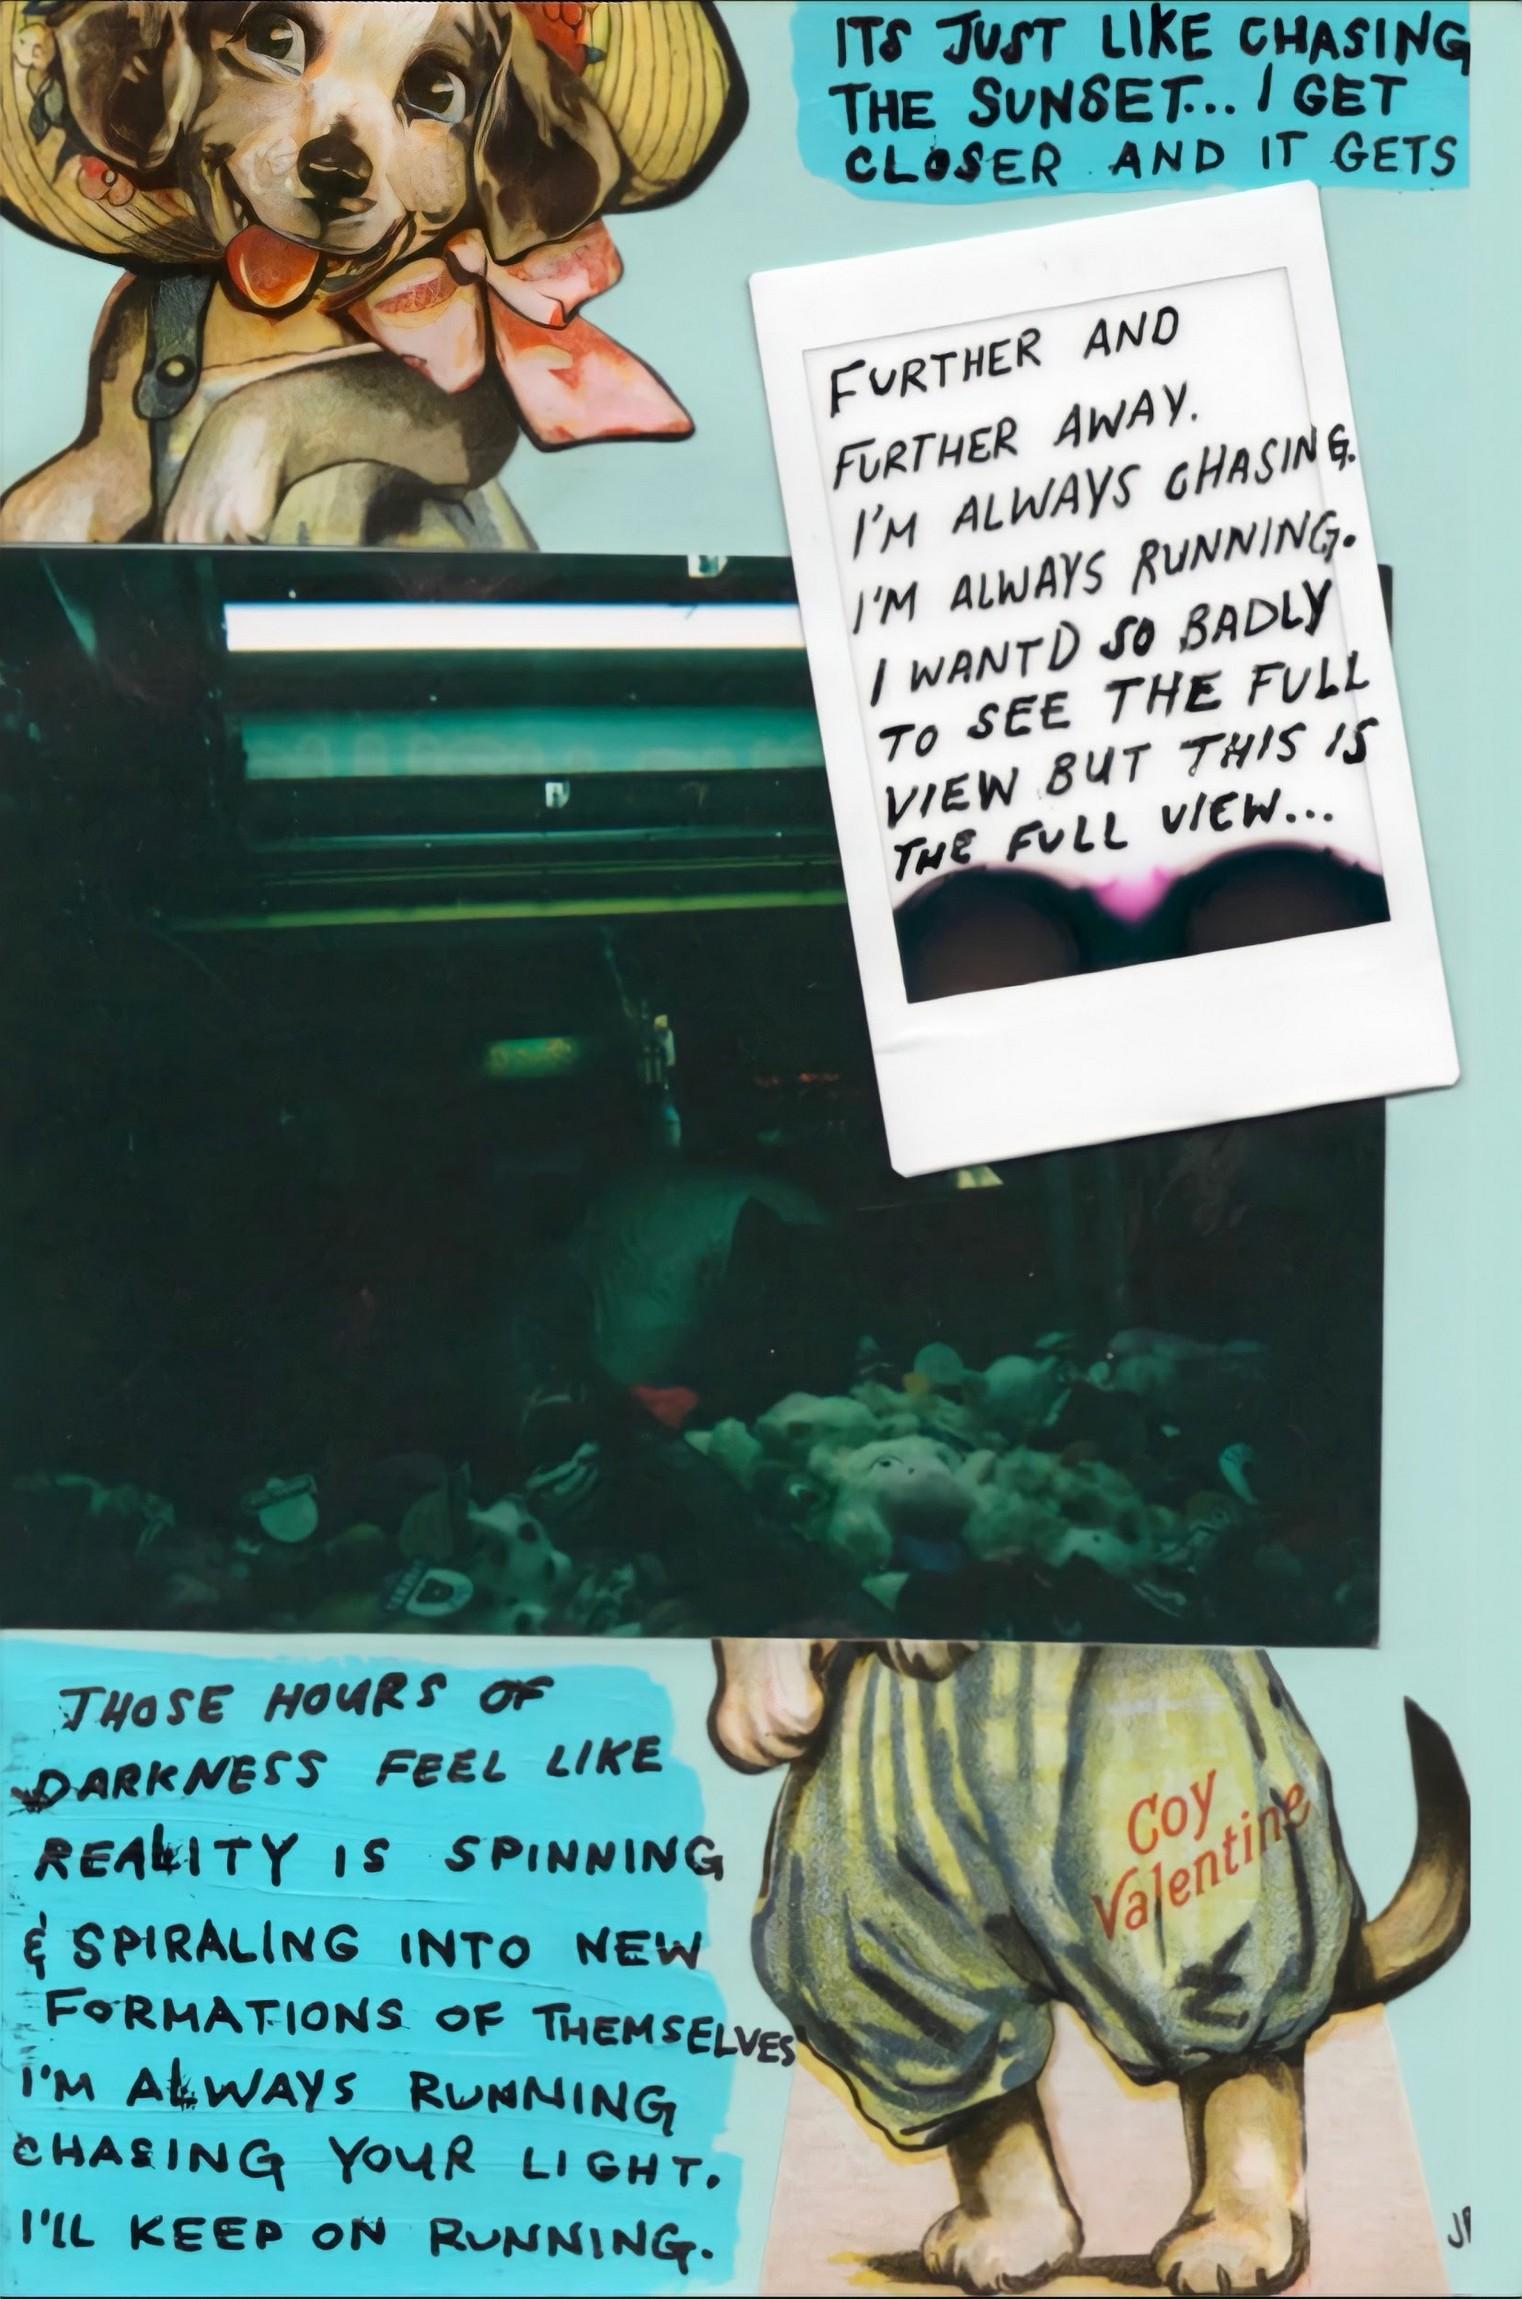 ITS JUST LIKE CHASING
THE SUNSET... I GET
CLOSER AND IT GETS
FURTHER AND
FURTHER AWAY.
I'M ALWAYS CHASING.
I'M ALWAYS RUNNING.
I WANTD SO BADLY
TO SEE THE FULL
VIEW BUT THIS IS
THE FULL VIEW...
THOSE HOURS OF
DARKNESS FEEL LIKE
REALITY IS SPINNING
& SPIRALING INTO NEW
FORMATIONS OF THEMSELVES
I'M ALWAYS RUNNING
CHASING YOUR LIGHT.
I'LL KEEP ON RUNNING.
Coy
Valentine